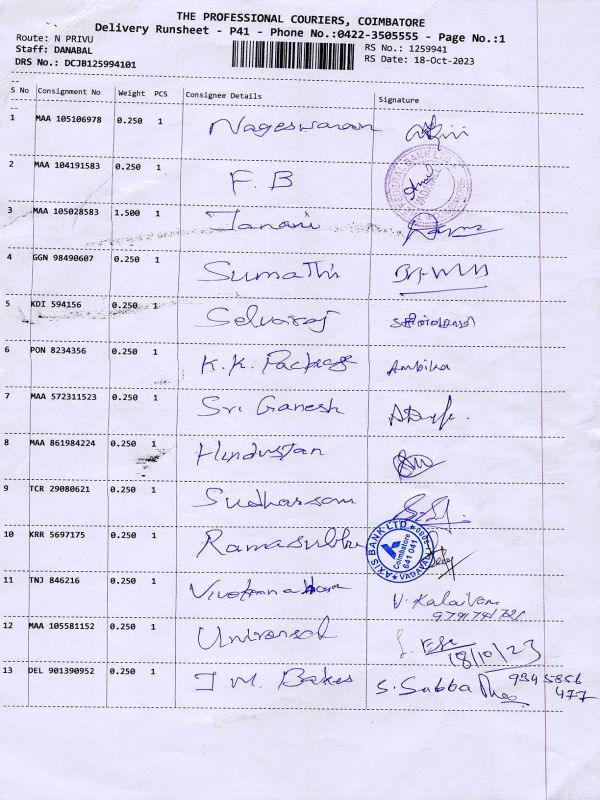 THE PROFESSIONAL COURIERS, COIMBATORE
Delivery Runsheet - P41 - Phone No.:0422-3505555 - Page No.:1
Route: N PRIVU RS No.: 1259941
Staff: DANABAL RS Date: 18-Oct-2023
DRS No.: DCJB125994101
S No Consignment No Weight PCS Consignee Details Signature
1 MAA 105106978 0.250 1 Nageswaran
2 MAA 104191583 0.250 1 F. B
3 MAA 105028583 1.500 1 Janani
4 GGN 98490607 0.250 1 Sumathi
5 KDI 594156 0.250 1 Selvaraj
6 PON 8234356 0.250 1 K.K. Package Ambika
7 MAA 572311523 0.250 1 Sri Ganesh
8 MAA 861984224 0.250 1 Hindustan
9 TCR 29080621 0.250 1 Sudharsam
10 KRR 5697175 0.250 1 Ramasubbu
AXIS BANK LTD
Coimbatore
641 041
VADAVALLI
11 TNJ 846216 0.250 1 V. Kalaivani
12 MAA 105581152 0.250 1 Universal
18/10/23
13 DEL 901390952 0.250 1 J.M. Bakes S. Subba 9345856
477